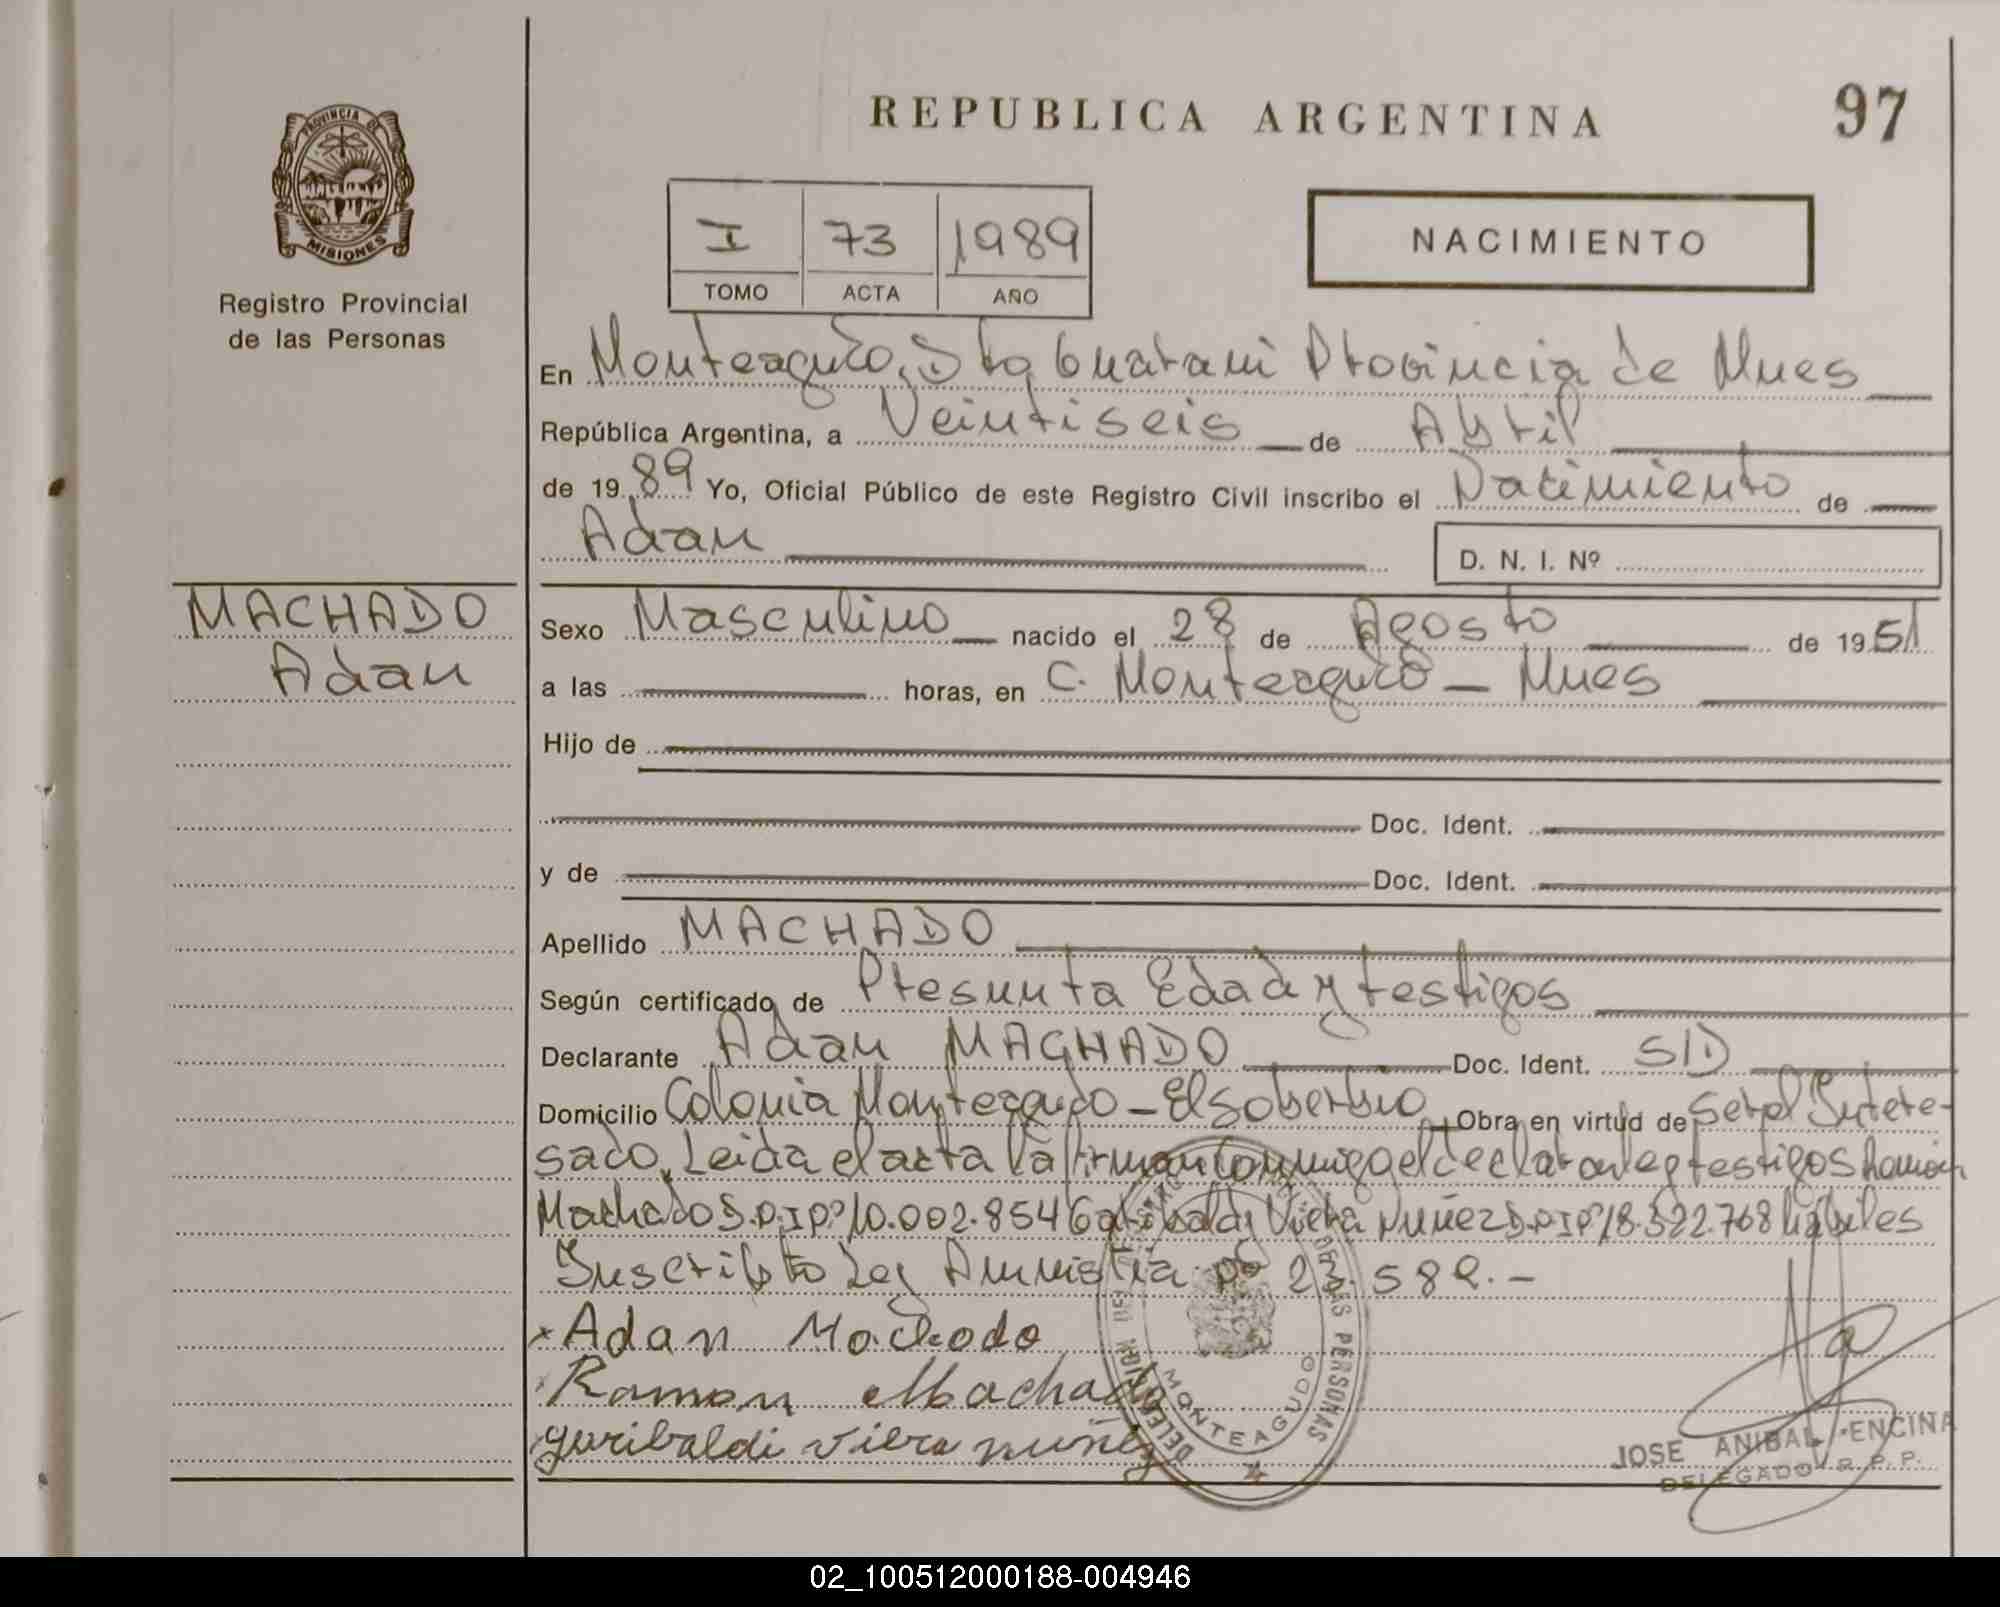 REPUBLICA ARGENTINA
97
PROVINCIA DE
MISIONES
Registro Provincial
de las Personas
I 73 1989
TOMO ACTA AÑO
NACIMIENTO
En Monteagudo, Dto Guarani Provincia de Mnes
República Argentina, a Veintiseis de Abril
de 1989 Yo, Oficial Público de este Registro Civil inscribo el Nacimiento de
Adan
D. N. I. Nº
MACHADO
Adan
Sexo Masculino nacido el 28 de Agosto de 1951
a las horas, en C. Monteagudo - Mnes
Hijo de
Doc. Ident.
y de Doc. Ident.
Apellido MACHADO
Según certificado de Presunta Edad y testigos
Declarante Adan MACHADO Doc. Ident. S/D
Domicilio Colonia Monteagudo - El Soberbio Obra en virtud de Ser el Intere-
sado. Leida el acta la firman conmigo el declarante y testigos Ramon
Machado D.N.I Nº 10.002.854 Garibaldi Viera Nuñez D.N.I Nº 18.322.768 habiles
Inscripto Ley Amnistia Nº 23.582.-
x Adan Machado
x Ramon Machado
garibaldi viera nuñez
DELEGACION DEL REGISTRO PROVINCIAL DE LAS PERSONAS
MONTEAGUDO
JOSE ANIBAL ENCINA
DELEGADO R. P. P.
02_100512000188-004946